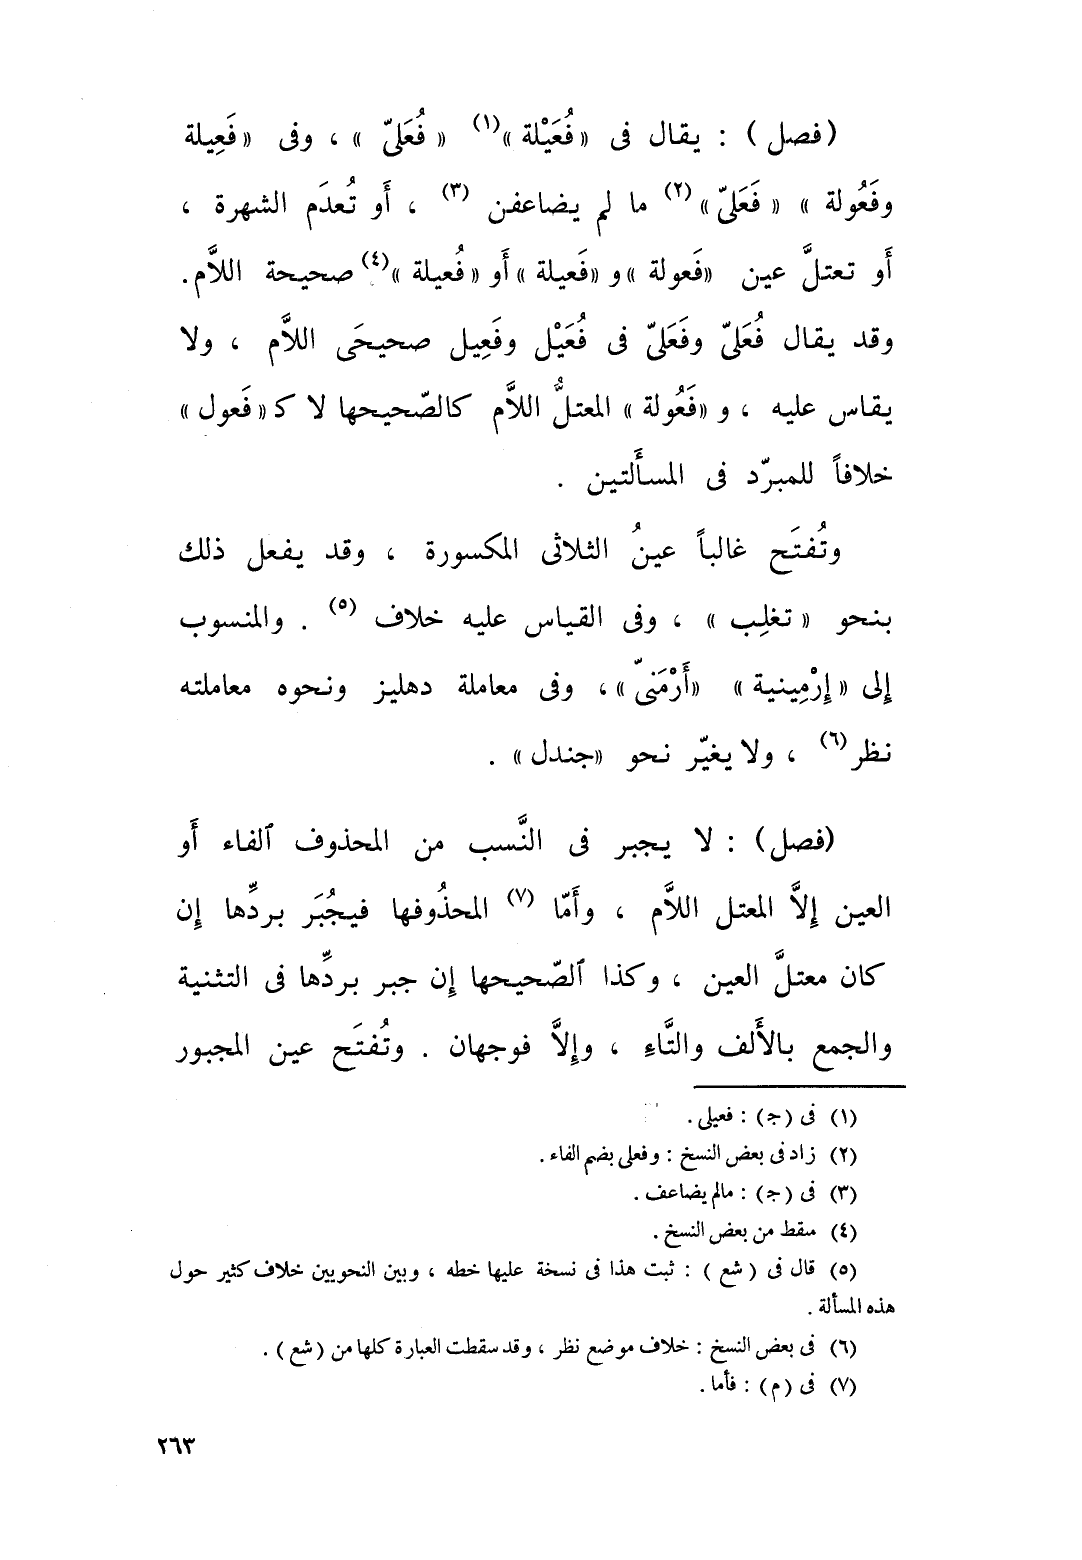 (فصل) : يقال فى «فُعَيْلة»(١) «فُعَلىّ» ، وفى «فَعِيلة
وفَعُولة» «فَعَلىّ»(٢) ما لم يضاعفن (٣) ، أو تُعدَم الشهرة ،
أو تعتلَّ عين «فَعولة» و «فَعيلة» أو «فُعيلة»(٤) صحيحة اللاَّم.
وقد يقال فُعَلىّ وفَعَلىّ فى فُعَيْل وفَعِيل صحيحَى اللاَّم ، ولا
يقاس عليه ، و «فَعُولة» المعتلُّ اللاَّم كالصّحيحها لا كـ «فَعول»
خلافاً للمبرّد فى المسألتين .
وتُفتَح غالباً عينُ الثلاثى المكسورة ، وقد يفعل ذلك
بنحو «تغلِب» ، وفى القياس عليه خلاف (٥) . والمنسوب
إلى «إرْمِينية» «أَرْمَنىّ» ، وفى معاملة دهليز ونحوه معاملته
نظر(٦) ، ولا يغيّر نحو «جندل» .
(فصل) : لا يجبر فى النَّسب من المحذوف ٱلفاء أو
العين إلاَّ المعتل اللاَّم ، وأمّا (٧) المحذُوفها فيجُبَر بردِّها إن
كان معتلَّ العين ، وكذا ٱلصّحيحها إن جبر بردِّها فى التثنية
والجمع بالألف والتَّاءِ ، وإلاَّ فوجهان . وتُفتَح عين المجبور
(١) فى (ج) : فعيلى .
(٢) زاد فى بعض النسخ : وفعلى بضم الفاء .
(٣) فى (ج) : مالم يضاعف .
(٤) سقط من بعض النسخ .
(٥) قال فى (شع) : ثبت هذا فى نسخة عليها خطه ، وبين النحويين خلاف كثير حول
هذه المسألة .
(٦) فى بعض النسخ : خلاف موضع نظر ، وقد سقطت العبارة كلها من (شع) .
(٧) فى (م) : فأما .
٢٦٣